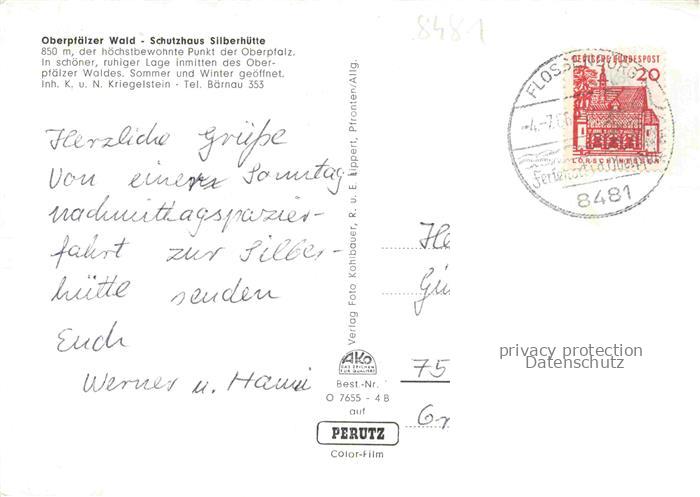 8481
Oberpfälzer Wald - Schutzhaus Silberhütte
850 m, der höchstbewohnte Punkt der Oberpfalz.
In schöner, ruhiger Lage inmitten des Ober-
pfälzer Waldes. Sommer und Winter geöffnet.
Inh. K. u. N. Kriegelstein - Tel. Bärnau 353
Herzliche Grüße
von einer Sonntag
nachmittagspazier-
fahrt zur Silber-
hütte senden
Euch
Werner u. Hanni
Verlag Foto Kohlbauer, R. u. E. Lippert, Pfronten/Allg.
AKO
DAS ZEICHEN
FÜR QUALITÄT
Best.-Nr.
O 7655 - 4 B
auf
PERUTZ
Color-Film
FLOSSENBÜRG
8481
DEUTSCHE BUNDESPOST
20
LORSCH/HESSEN
He
Gü
75
Gr
privacy protection
Datenschutz